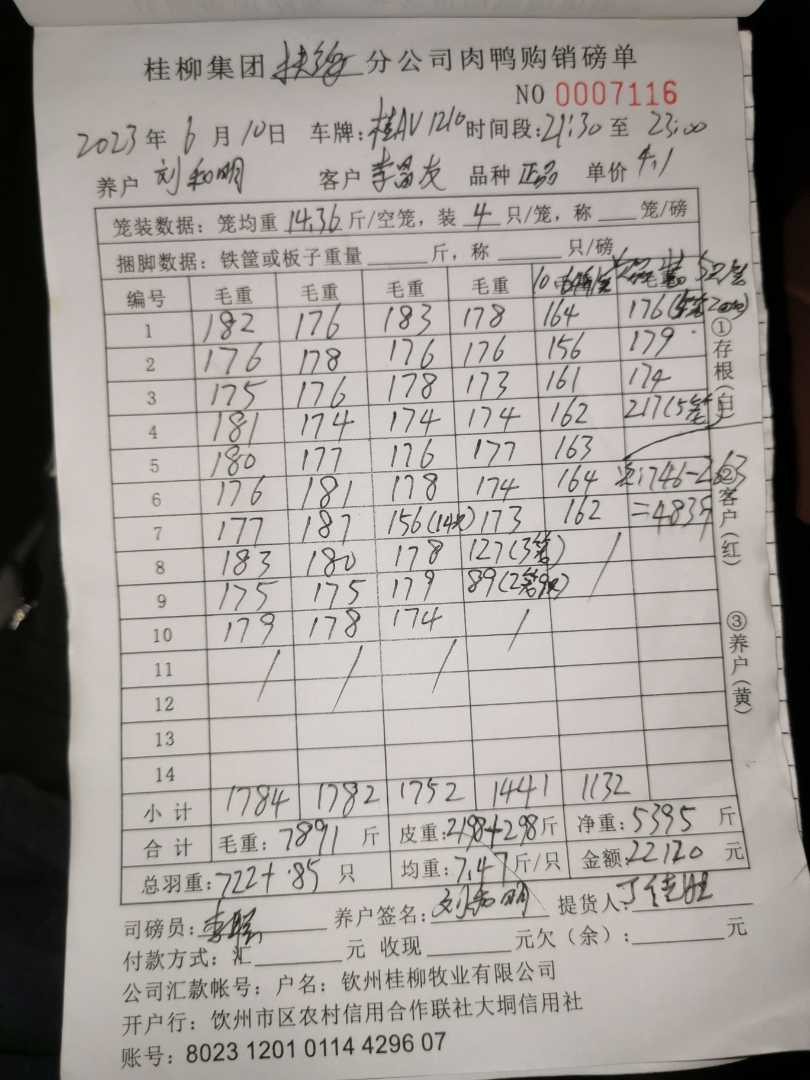 桂柳集团 扶绥 分公司肉鸭购销磅单
NO 0007116
2023年6月10日 车牌:桂AV1210 时间段:21:30至23:00
养户 刘和明 客户 李昌友 品种 正品 单价 4.1
笼装数据:笼均重14.36斤/空笼,装4只/笼,称 笼/磅
捆脚数据:铁筐或板子重量 斤,称 只/磅
编号 毛重 毛重 毛重 毛重 毛重
1 182 176 183 178 164 176
2 176 178 176 176 156 179
3 175 176 178 173 161 174
4 181 174 174 174 162 217(5笼)
5 180 177 176 177 163
6 176 181 178 174 164 746-263
7 177 187 156(14只) 173 162 =4835
8 183 180 178 127(3笼)
9 175 175 179 89(2笼9只)
10 179 178 174
11
12
13
14
小计 1784 1782 1752 1441 1132
合计 毛重:7891斤 皮重:2198+298斤 净重:5395斤
总羽重:722+85只 均重:7.47斤/只 金额:22120元
司磅员: 养户签名:刘和明 提货人:丁佳胜
付款方式:汇 元 收现 元欠(余): 元
公司汇款帐号:户名:钦州桂柳牧业有限公司
开户行:钦州市区农村信用合作联社大垌信用社
账号:8023 1201 0114 4296 07
①存根(白)
②客户(红)
③养户(黄)